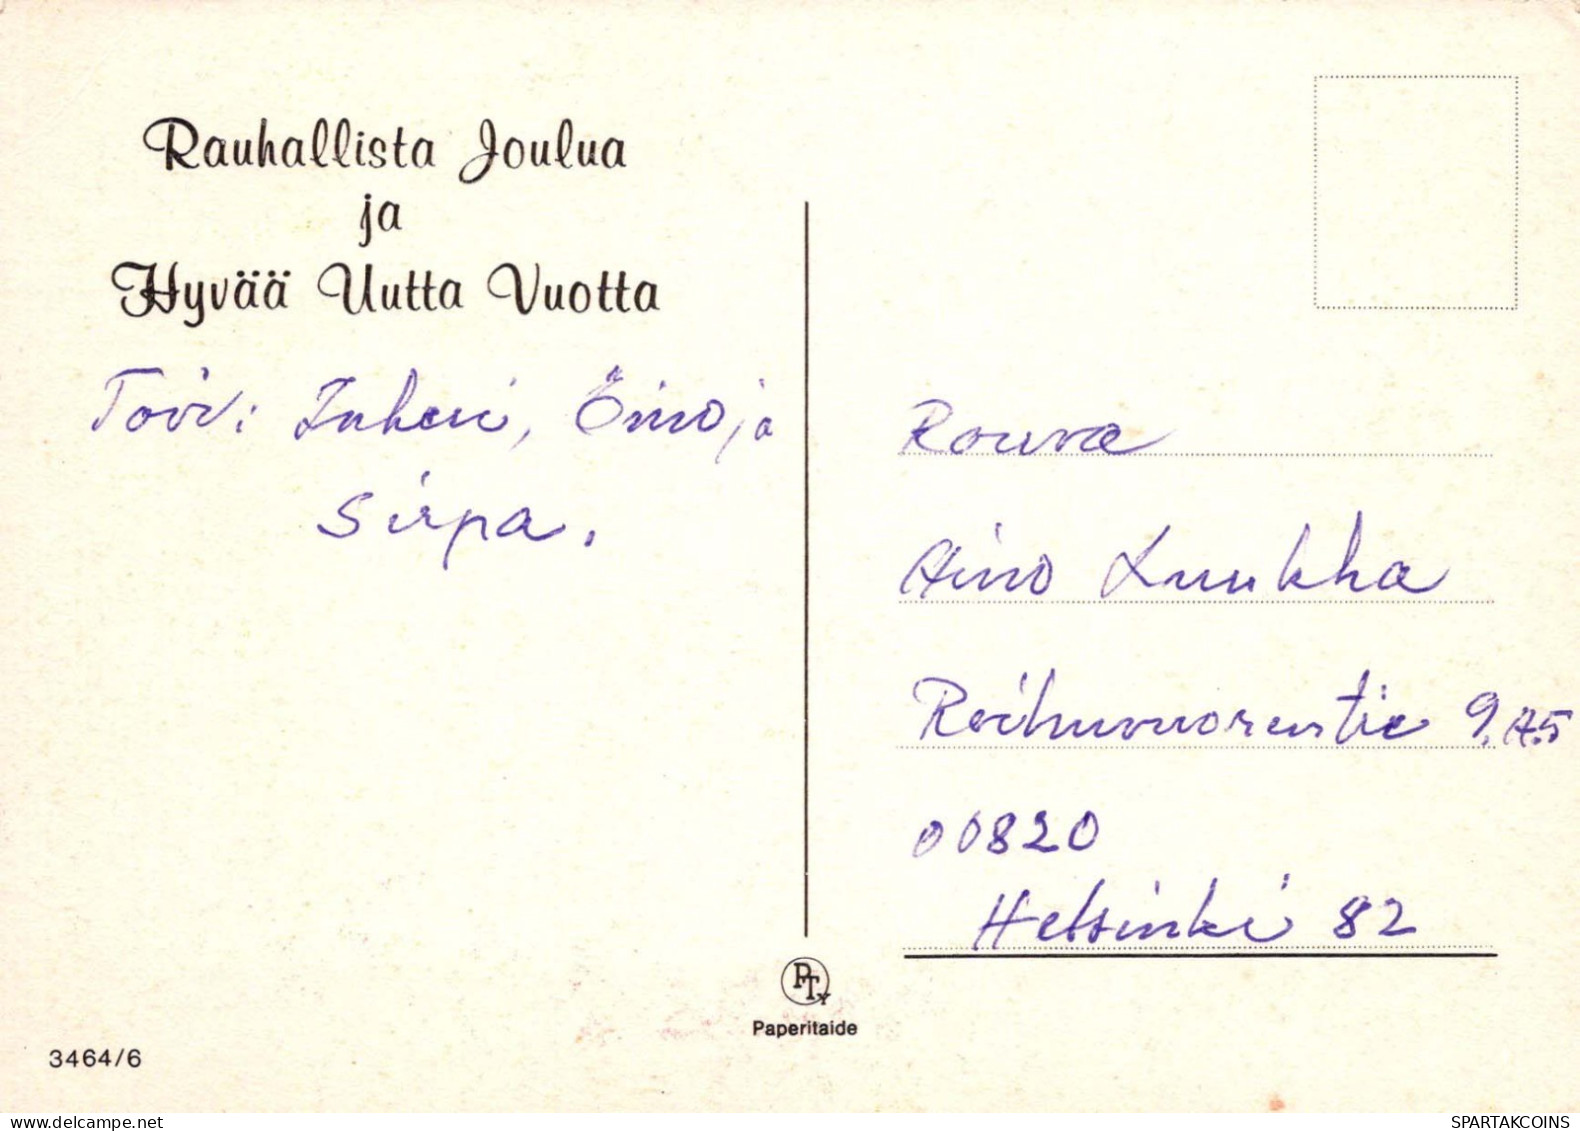 Rauhallista Joulua
ja
Hyvää Uutta Vuotta
Toiv: Inkeri, Eino ja
Sirpa.
Rouva
Aino Luukka
Reihuvuorentie 9. A.5
00820
Helsinki 82
PTy
Paperitaide
3464/6
SPARTAKCOINS